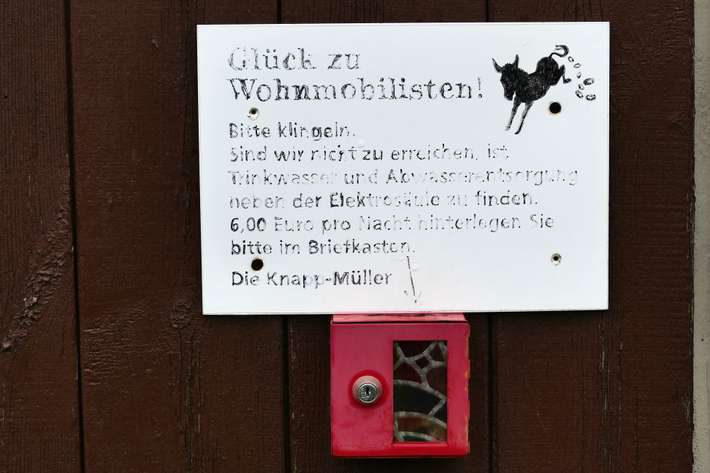 Glück zu
Wohnmobilisten!
Bitte klingeln.
Sind wir nicht zu erreichen, ist
Trinkwasser und Abwasserentsorgung
neben der Elektrosäule zu finden.
6,00 Euro pro Nacht hinterlegen Sie
bitte im Briefkasten.
Die Knapp-Müller